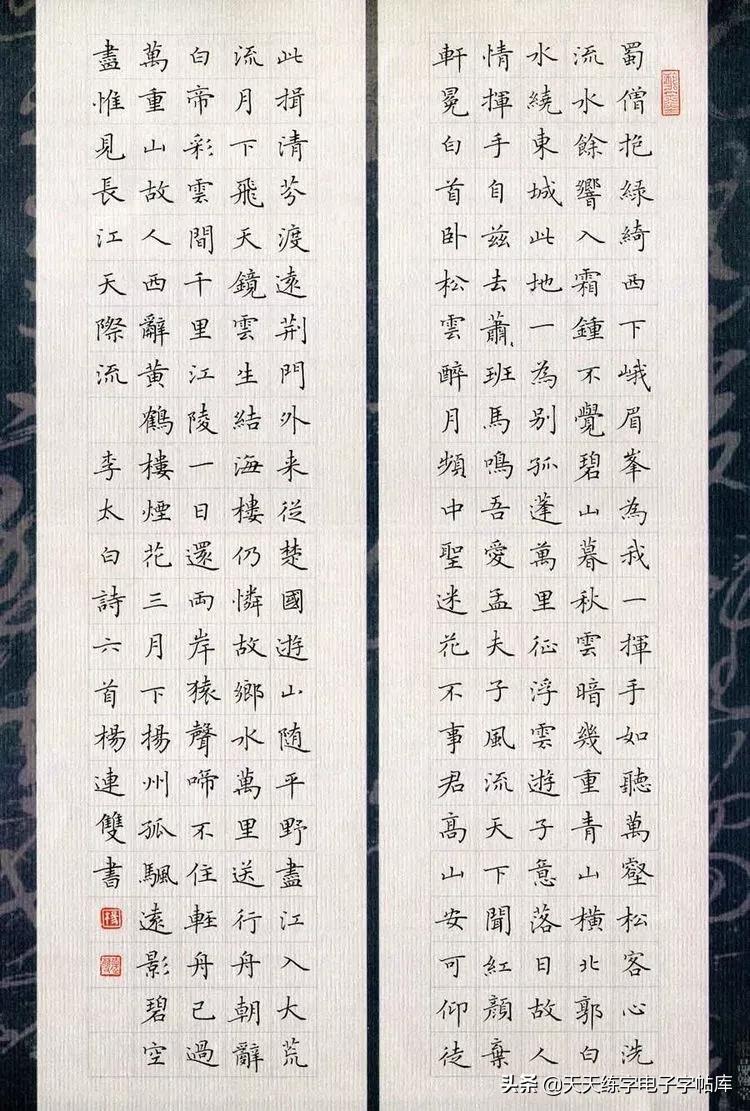 蜀僧抱綠綺西下峨眉峯為我一揮手如聽萬壑松客心洗
流水餘響入霜鍾不覺碧山暮秋雲暗幾重青山橫北郭白
水繞東城此地一為別孤蓬萬里征浮雲遊子意落日故人
情揮手自兹去蕭〻班馬鳴吾愛孟夫子風流天下聞紅顏棄
軒冕白首卧松雲醉月頻中聖迷花不事君高山安可仰徒
此揖清芬渡遠荆門外来從楚國遊山随平野盡江入大荒
流月下飛天鏡雲生結海樓仍憐故鄉水萬里送行舟朝辭
白帝彩雲間千里江陵一日還両岸猿聲啼不住輕舟已過
萬重山故人西辭黄鶴樓煙花三月下揚州孤颿遠影碧空
盡惟見長江天際流 李太白詩六首楊連雙書
头条 @天天练字电子字帖库